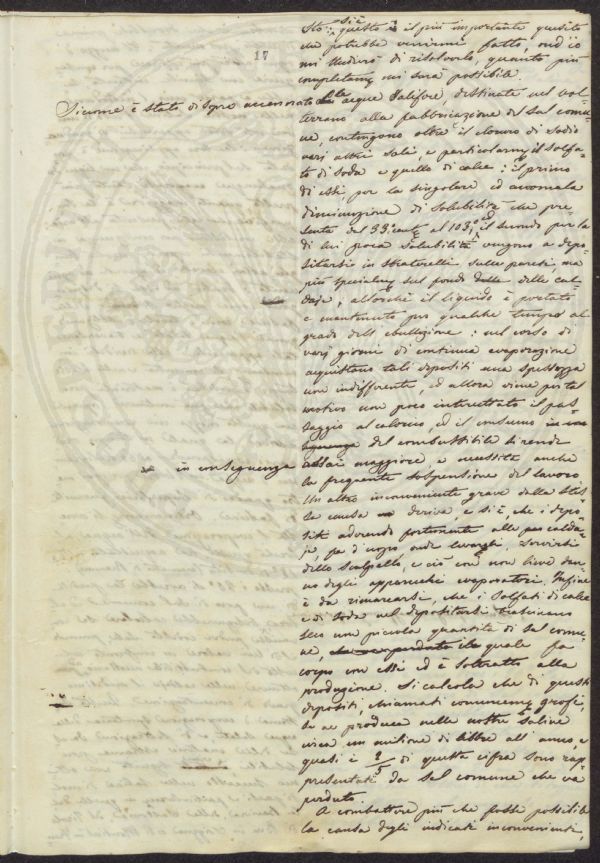 17
sto si è questo è il più importante quesito
che potrebbe venirmi fatto, ond'io
mi studierò di risolverlo, quanto più
completam. mi sarà possibile.
Siccome è stato di sopra accennato le acque salifere, destinate nel vol-
terrano alla fabbricazione del sal comu-
ne, contengono oltre il cloruro di sodio
varj altri sali, e particolarm. il solfa-
to di soda e quello di calce: il primo
di essi, per la singolare ed anomala
diminuzione di solubilità che pre-
senta dal 33° cent. al 103°, il secondo per la
di lui poca solubilità vengono a depo-
sitarsi in straterelli sulle pareti, ma
più specialm. sul fondo delle delle cal-
daje, allorché il liquido è portato
e mantenuto per qualche tempo al
grado dell'ebullizione: nel corso di
varj giorni di continua evaporazione
acquistano tali depositi una spessezza
non indifferente, ed allora viene per tal
motivo non poco intercettato il pas-
saggio al calorico, ed il consumo
in conseguenza del combustibile si rende
assai maggiore e necessita anche
la frequente sospensione del lavoro
Un altro inconveniente grave dalla stes-
sa causa ne deriva, e si è, che i depo-
siti aderendo fortemente alle caldaje,
fa d'uopo onde levargli, servirsi
dello scalpello, e ciò con non lieve dan-
no degli apparecchi evaporatori. Infine
è da rimarcarsi, che i solfati di calce
e di soda nel depositarsi trascinano
seco una piccola quantità di sal comu-
ne, la quale fa
corpo con essi ed è sottratto alla
produzione. Si calcola che di questi
depositi, chiamati comunem. grossi,
se ne produca nelle nostre saline
circa un milione di libbre all'anno, e
quasi i 2/5 di questa cifra sono rap-
presentati da sal comune che va
perduto.
A combattere più che fosse possibile
la causa degli indicati inconvenienti,